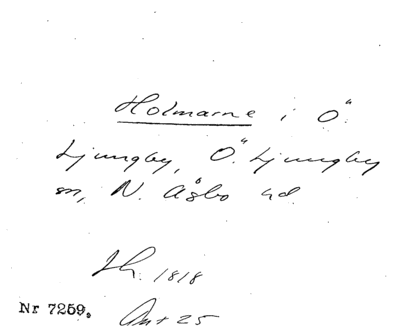 Holmarne i Ö.
Ljungby, Ö. Ljungby
sn, N. Åsbo hd.
Sk. 1818
Nr 7259.
Ant 25